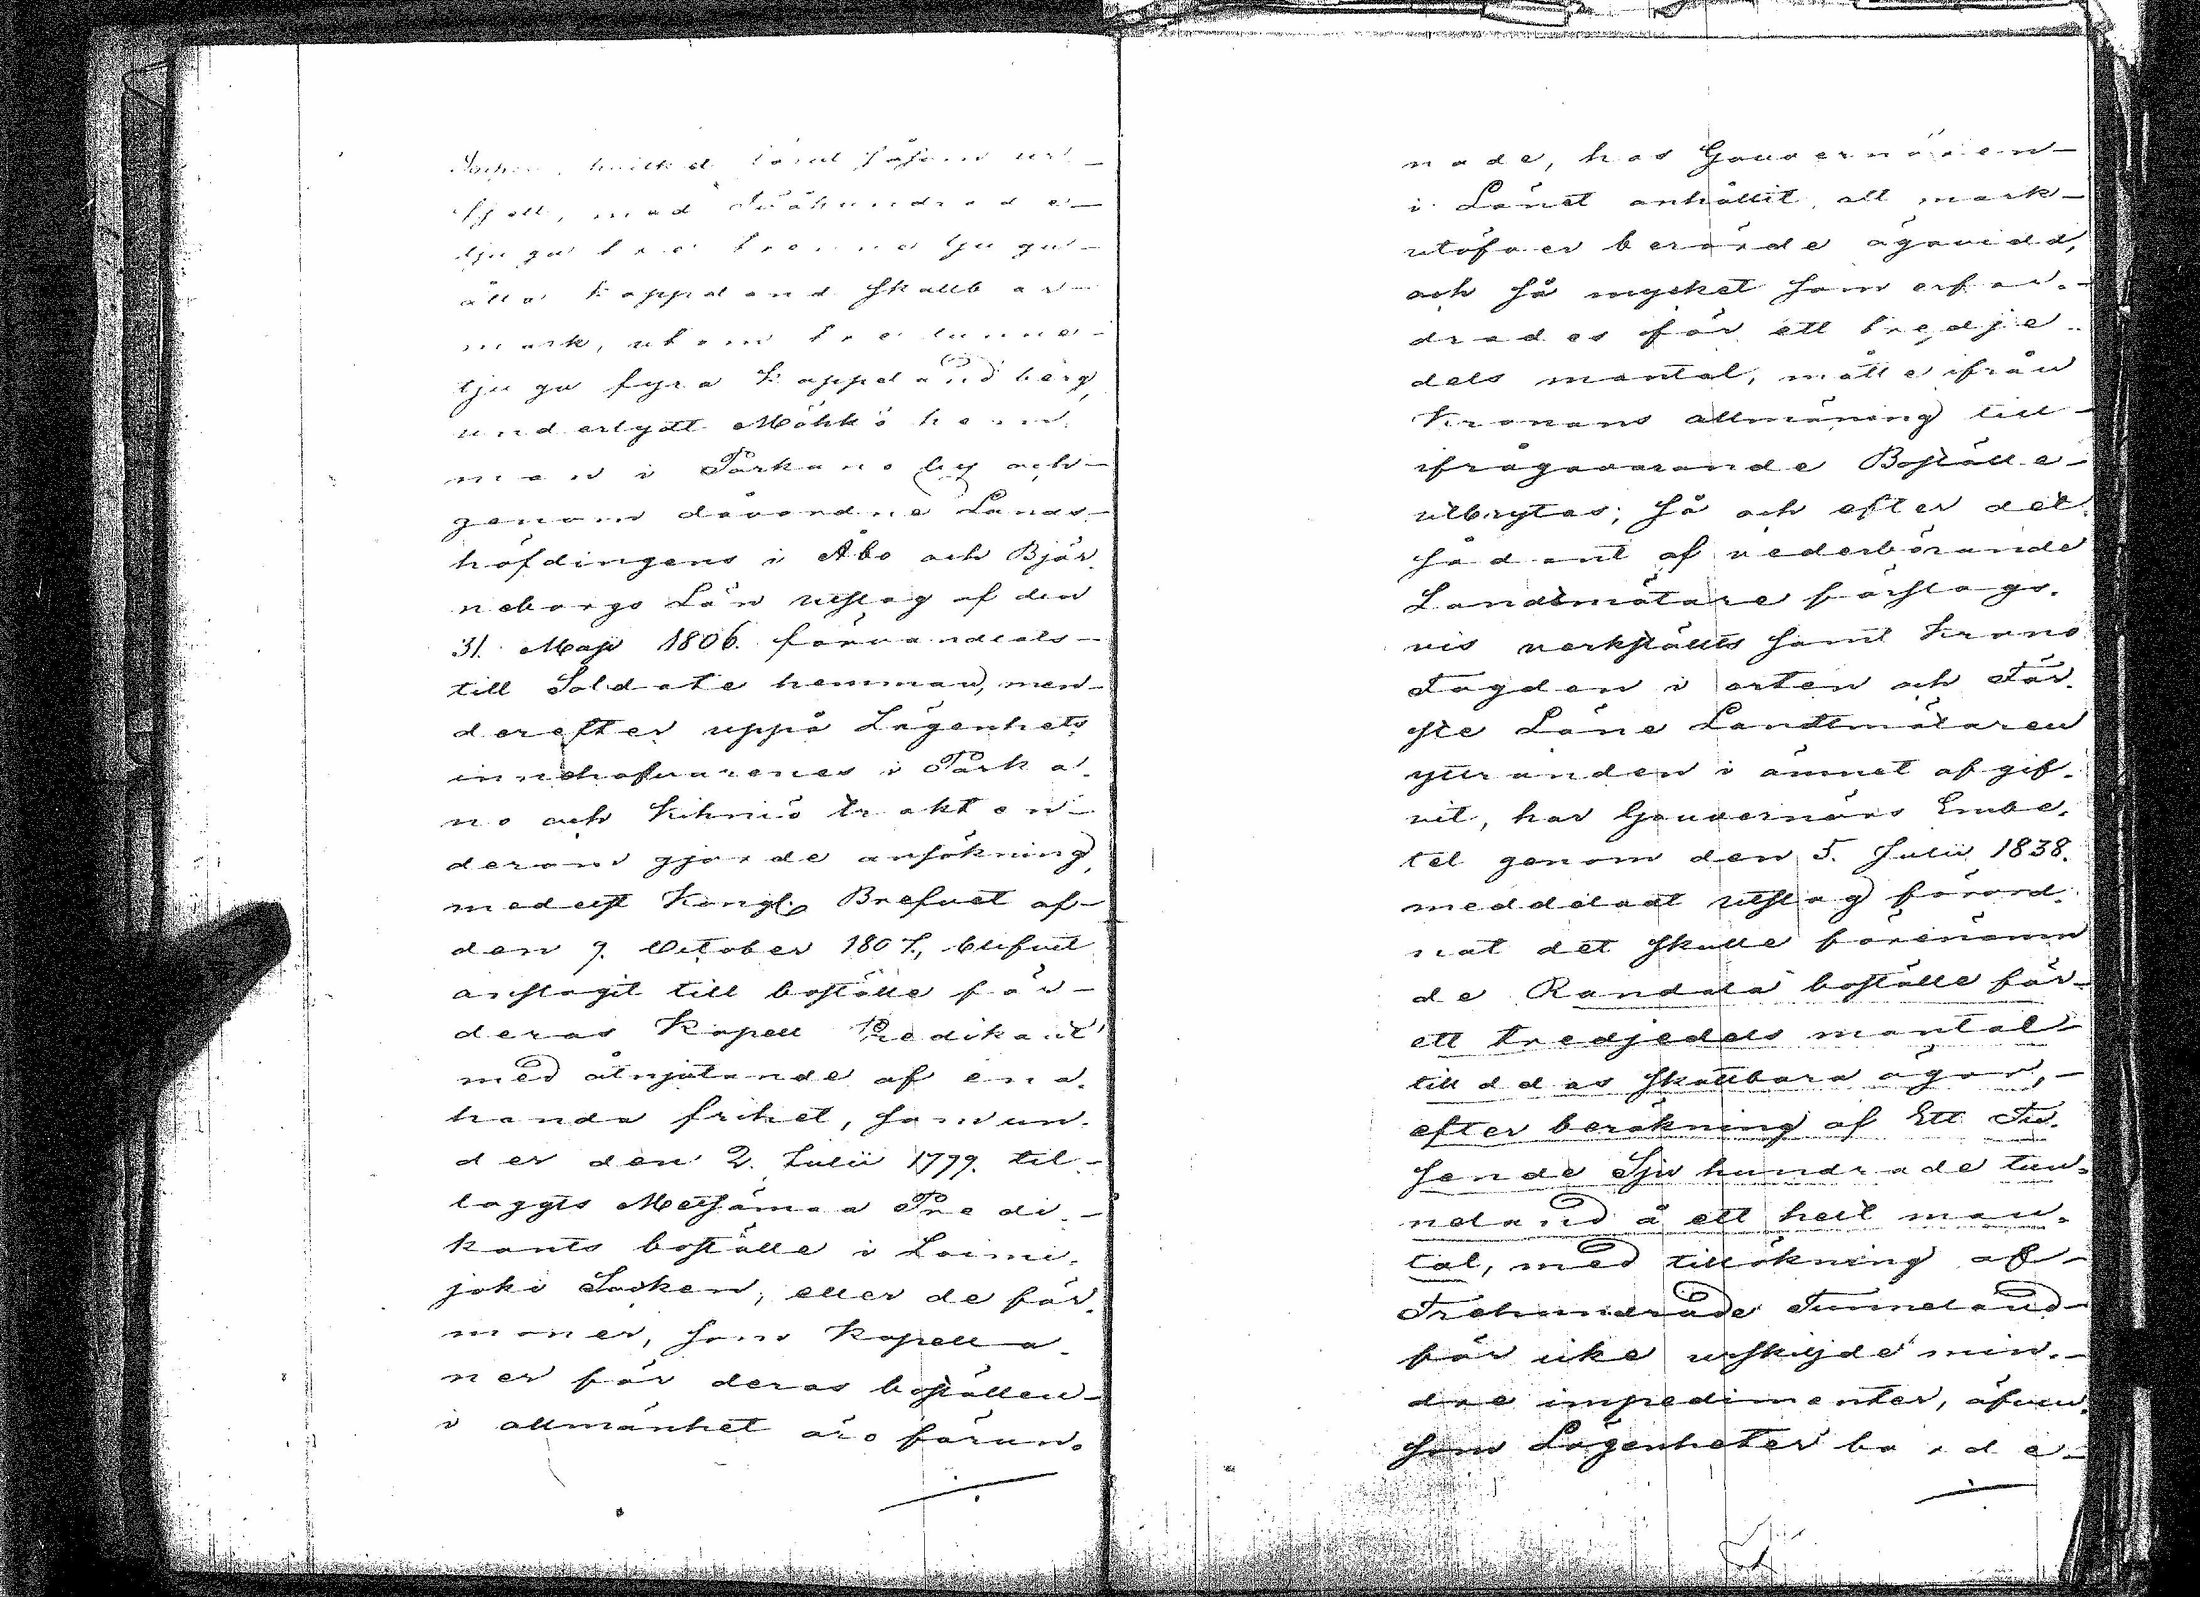 Socken, hvilket
fjell, med Tvåhundrade
tjugu tre tunne tjugu
åtta Kappeland skattbar
mark, utom tre tunne
tjugu fyra Kappeland berg,
underlydt Möhkö hem
man i Parkano by och
genom dåvarande Lands
höfdingens i Åbo och Björ
neborgs Län utslag af den
31. Maji 1806. förvandlats
till Soldate hemman, men
derefter uppå Lägenhets
innehafvarenes i Parka
no och Kihniö trakten
derom gjorde ansökning,
medelst Kongl. Brefvet af
den 9. October 1807, blifvit
anslagit till boställe för
deras Kapell Predikant
med åtnjutande af ena
handa frihet, som un
der den 2. Julii 1779. til
laggts Metsämaa Predi
kants boställe i Loimi
joki Socken, eller de för
moner, som Kapella
ner för deras boställen
i allmänhet äro förun
nade, hos Gouvernören
i Länet anhållit, att mark
utöfver berörde ägovidd,
och så mycket som erfor
drades för ett tredje
dels mantal, måtte ifrån
Kronans allmäning till
ifrågavarande Boställe
utbrytas; så och efter det
sådant af vederbörande
Landtmätare förslags
vis verkställts samt Krono
Fogden i orten och För
ste Läne Landtmätaren
yttranden i ämnet afgif
vit, har Gouvernörs Embe
tet genom den 5. Julii 1838.
meddeladt utslag förord
nat det skulle förenämn
de Randala boställe för
ett tredjedels mantal
tilldelas skattbara ägor,
efter beräkning af Ett Tu
sende Sju hundrade tun
neland å ett helt man
tal, med tillökning af
Trehundrade Tunneland
för icke urskiljde min
dre impedimenter, äfven
som Lägenheten borde